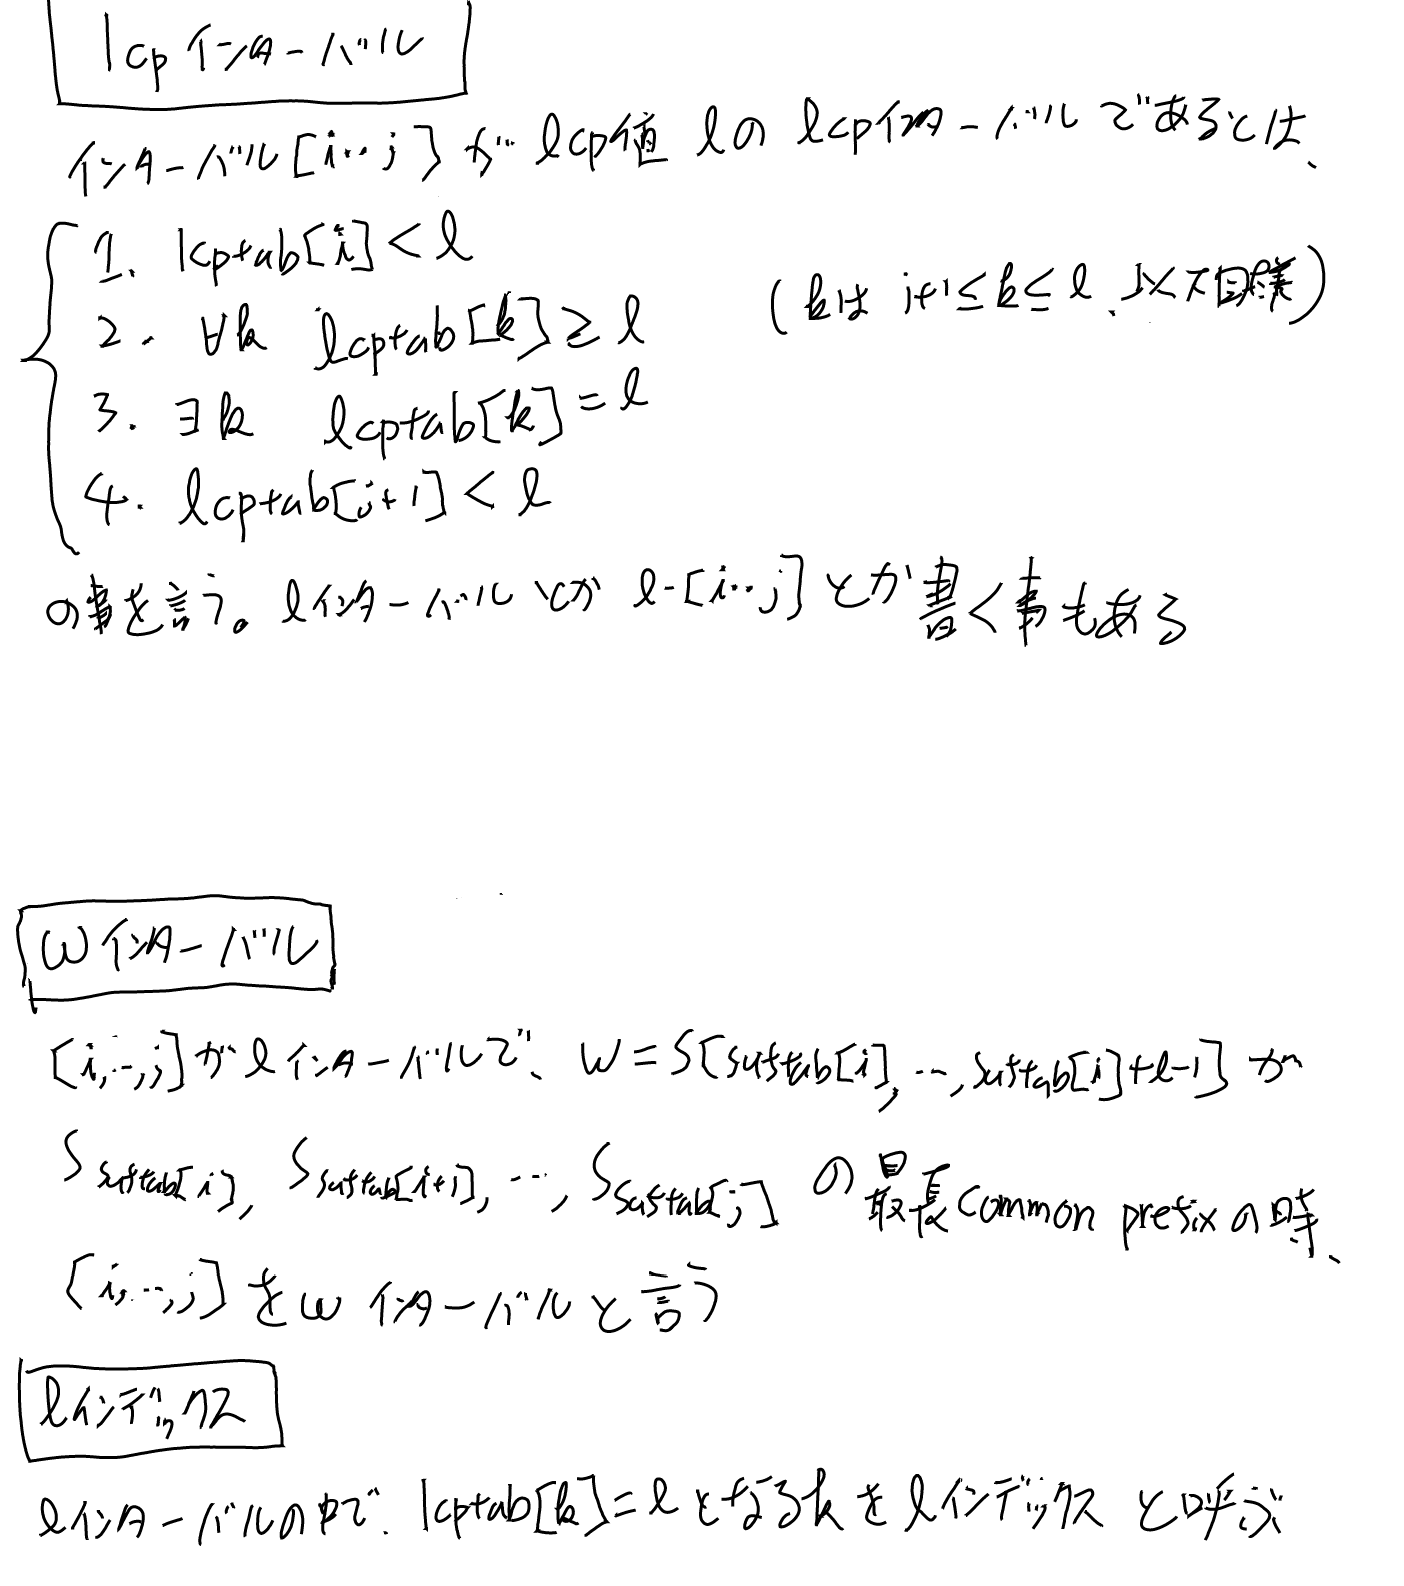 lcpインターバル
インターバル[i‥j]がlcp値 lの lcpインターバルであるとは、
1. lcptab[i]<l
2. ∀k lcptab[k]≥l (kは i+1≤k≤l、以下同様)
3. ∃k lcptab[k]=l
4. lcptab[j+1]<l
の事を言う。lインターバルとか l-[i‥j]とか書く事もある
ωインターバル
[i,…,j]がlインターバルで、ω=S[suftab[i],…,suftab[i]+l-1]が
Ssuftab[i], Ssuftab[i+1], …, Ssuftab[j] の最長common prefixの時、
[i,…,j]をωインターバルと言う
lインデックス
lインターバルの中で、lcptab[k]=lとなるkをlインデックスと呼ぶ